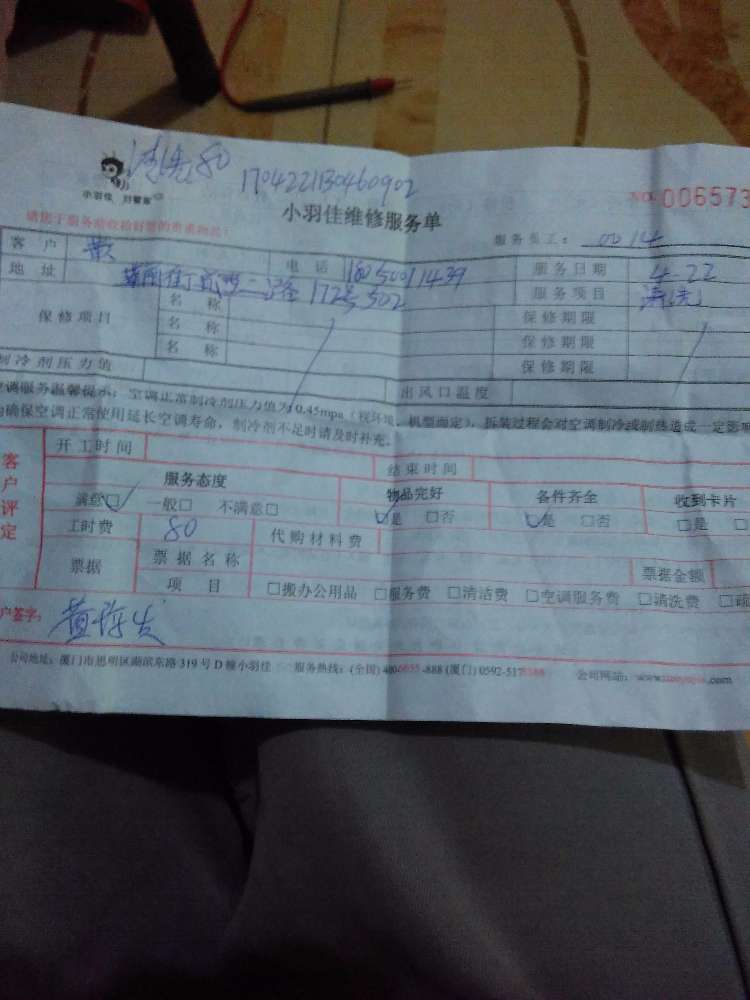 清洗80
170422130460902
小羽佳 好管家
小羽佳维修服务单
NO. 006573
请您于服务前收拾好您的贵重物品！
服务员工： 0014
客 户 黄 电 话 18050011439 服务日期 4-22
地 址 172号502 服务项目 清洗
保修项目 名 称 保修期限
名 称 保修期限
名 称 保修期限
制冷剂压力值 出风口温度
空调服务温馨提示：空调正常制冷剂压力值为0.45mpa（视环境、机型而定），拆装过程会对空调制冷或制热造成一定影响
为确保空调正常使用延长空调寿命，制冷剂不足时请及时补充。
客户评定
开工时间 结束时间
服务态度 物品完好 各件齐全 收到卡片
满意☑ 一般□ 不满意□ ☑是 □否 ☑是 □否 □是
工时费 80 代购材料费
票据 票据名称 票据金额
项 目 □搬办公用品 □服务费 □清洁费 □空调服务费 □清洗费 □疏
户签字：
公司地址：厦门市思明区湖滨东路319号D幢小羽佳 服务热线：(全国) 4006655-888 (厦门) 0592-517 公司网站：